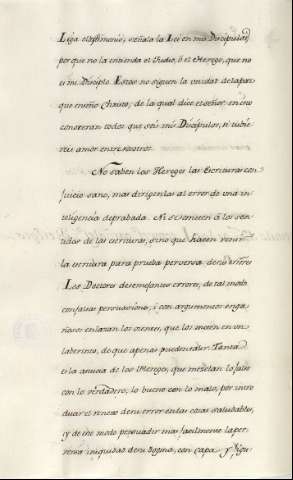 Liga el testimonio, señala la Lei en mis Discipulos,
porque no la entienda el Judio, ò el Herege, que no
es mi Discipulo. Estos no siguen la verdad de la paz
que enseño Christo, de la qual dice el señor: en esto
conoceran todos que sois mis Discipulos, si tubie-
reis amor entre vosotros.
No saben los Hereges las Escrituras con
Juicio sano, mas dirigenlas al error de una in-
teligencia depravada. Ni se someten à los sen-
tidos de las escrituras, sino que hacen venir
la escritura para prueba perversa de sus errores
Los Doctores de semejantes errores, de tal modo
con falsas persuasiones, i con argumentos enga-
ñosos enlazan los oientes, que los meten en un
laberinto, de que apenas pueden salir. Tanta
es la astucia de los Hereges, que mezclan lo falso
con lo verdadero, lo bueno con lo malo, por intro
ducir el veneno de su error en las cosas saludables,
i de este modo persuadir mas facilmente la per-
versa iniquidad de su dogma, con capa, y figu